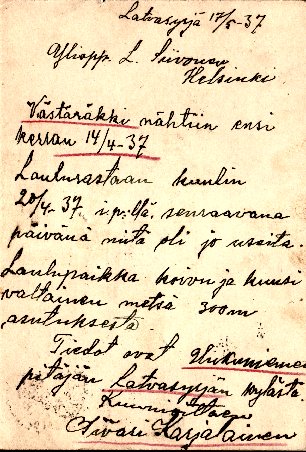 Latvasyrjä 17/5-37
Yliopp. L. Siivonen
Helsinki
Västäräkki nähtiin ensi
kerran 14/4-37
Laulurastaan kuulin
20/4-37. i.p:llä, seuraavana
päivänä niitä oli jo useita.
Laulupaikka koivu ja kuusi
valtainen metsä 300m
asutuksesta.
Tiedot ovat Uukuniemen
pitäjän Latvasyrjän kylästä
Kunnioittaen
Toivari Karjalainen